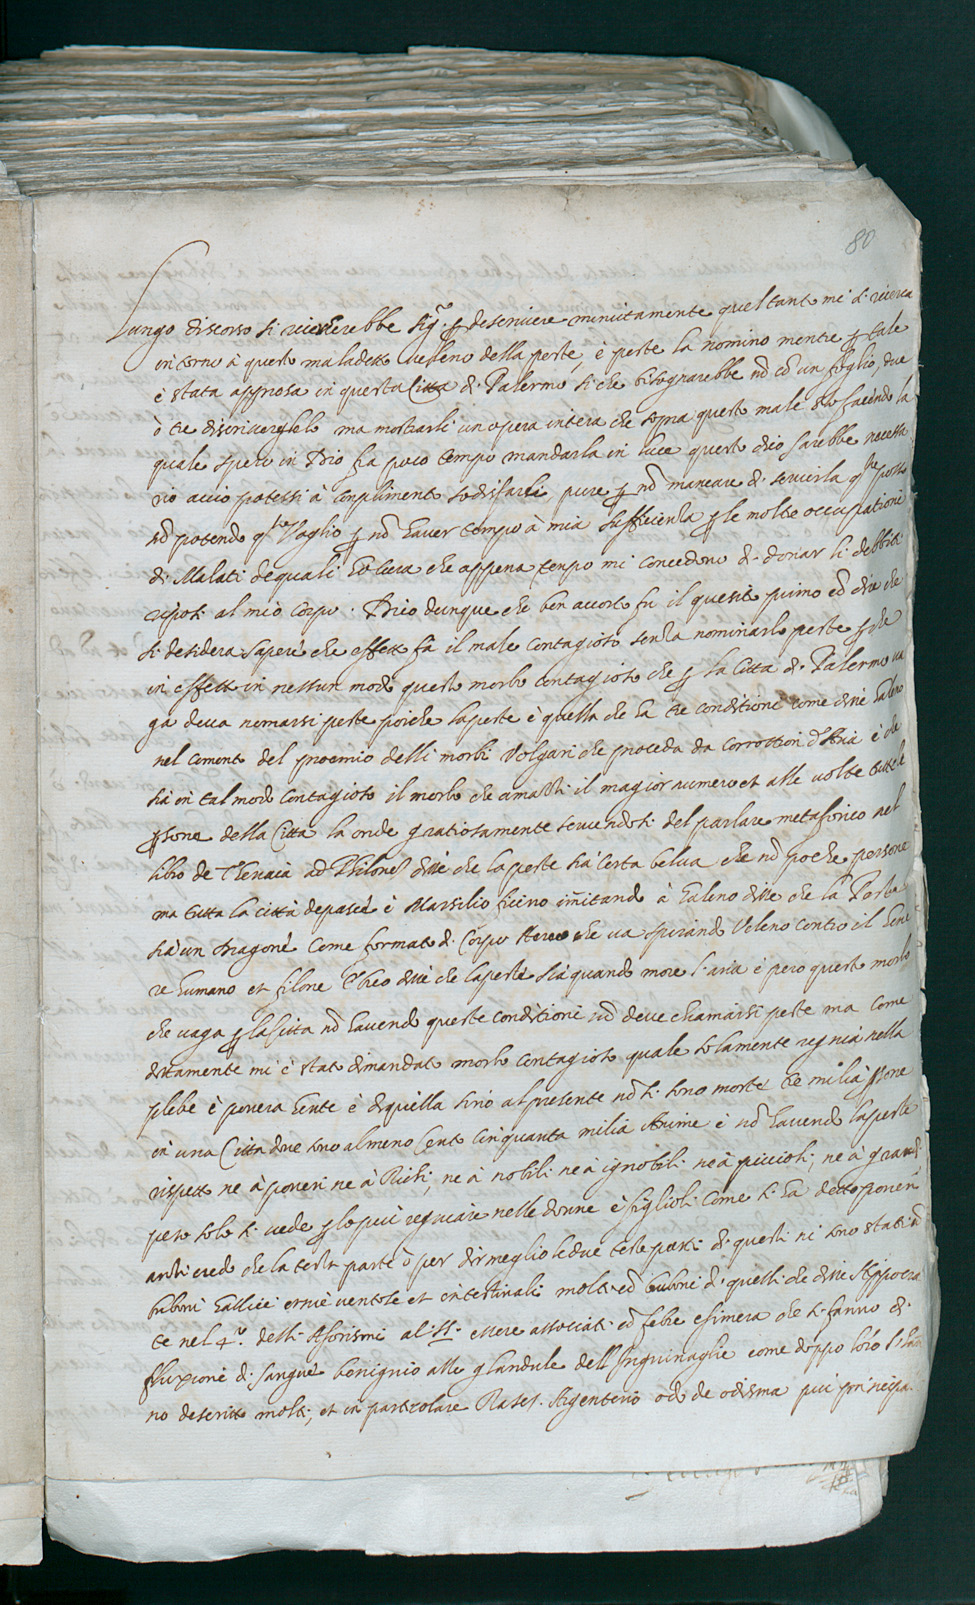 80
Lungo discorso si ricercherebbe Sigr. p descrivere minutamente quel tanto mi si ricerca
intorno à questo maladetto veleno della peste, è peste la nomino mentre p tale
è stata appresa in questa Città di Palermo si che bisognarebbe nõ cõ un foglio, due
ò tre discriverglielo ma mostrarli un opera intera che sopra questo male sto facendo la
quale spero in Dio fra poco tempo mandarla in luce questo dico sarebbe necessa
rio accio potessi à complimento sodisfarla, pure p nõ mancare di servirla q.to posso
nõ potendo q.to Voglio p nõ haver tempo à mia sufficienza p le molte occupationi
di Malati de quali hò Cura che appena tempo mi concedono di donar li debbiti
riposi al mio corpo. Dico dunque che ben accorto fu il quesito primo cõ dire che
si desidera sapere che effetto fà il male contagioso senza nominarlo peste p che
in effetto in nessun modo questo morbo contagioso che p la Città di Palermo va
ga deva nomarsi peste poiche la peste è quella che ha tre conditioni come disse Galeno
nel comento del proemio delli morbi Volgari che proceda da corrottion d'Aria è che
sia in tal modo contagioso il morbo che amazzi il magior numero et alle volte tutte le
psone della Città la onde gratiosamente servendosi del parlare metaforico nel
libro de Theriaca ad Pisone disse che la peste sia certa belva che nõ poche persone
ma tutta la città depasce è Marsilio ficino imitando à Galeno disse che la Peste
sia un Dragone Come formato di Corpo Aereo che va spirando Veleno contro il Gene
re humano et filone Ebreo disse che la peste sia quando more l'aria è pero questo morbo
che vaga p la Città nõ havendo queste conditioni nõ deve chiamarsi peste ma come
dottamente mi è stato dimandato morbo contagioso quale solamente regna nella
plebe è povera Gente è di quella sino al presente nõ si sono morte tre milia psone
in una Città dove sono almeno Cento cinquanta milia Anime è nõ havendo la peste
rispetto ne à poveri ne à Richi, ne à nobili ne à ignobili ne à piccioli, ne à grandi
pero solo si vede p lo più regnare nelle donne è figlioli come si ha detto poveri
anzi credo che la terza parte ò per dir meglio le due terze parti di questi vi sono stati cõ
buboni Gallici ernie ventose et intestinali molti cõ buboni di quelli che disse Hippocra
te nel 4.o delli Aforismi al 55. essere associati cõ febre efimera che si fanno di
fluxione di sangue benigno alle glandule dell'Inguinaglie come doppo loro l'han
no descritto molti, et in particolare Rases. Argenterio